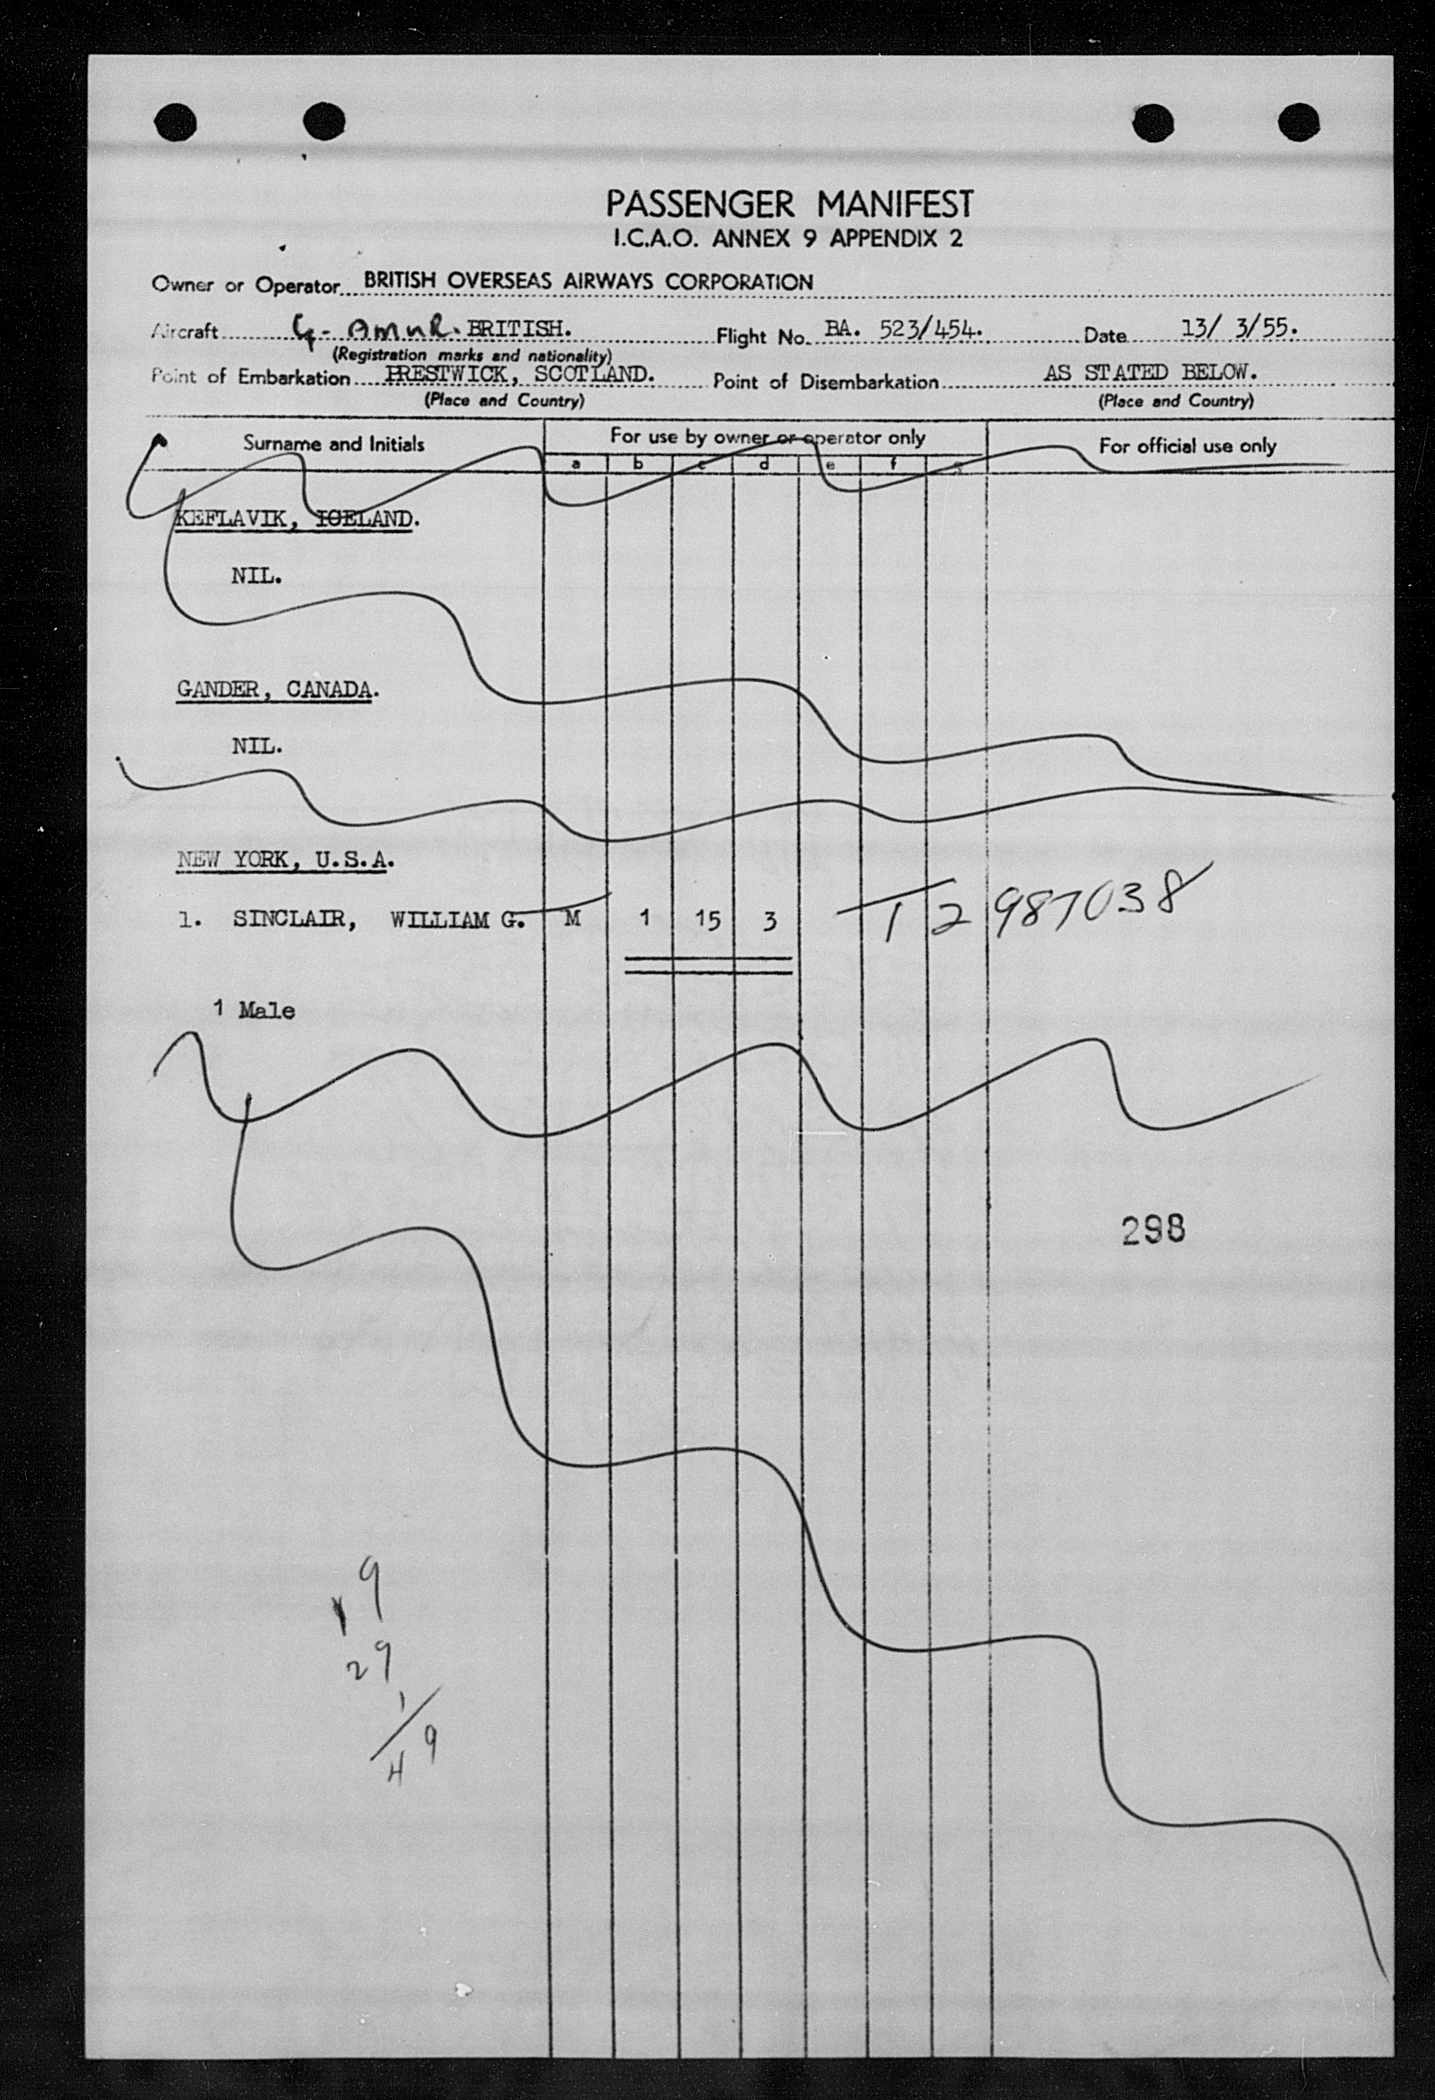 PASSENGER MANIFEST
I.C.A.O. ANNEX 9 APPENDIX 2
Owner or Operator BRITISH OVERSEAS AIRWAYS CORPORATION
Aircraft G- AMUR. BRITISH. Flight No. BA. 523/454. Date 13/ 3/55.
(Registration marks and nationality)
Point of Embarkation PRESTWICK, SCOTLAND. Point of Disembarkation AS STATED BELOW.
(Place and Country) (Place and Country)
Surname and Initials For use by owner or operator only For official use only
a b c d e f g
KEFLAVIK, ICELAND.
NIL.
GANDER, CANADA.
NIL.
NEW YORK, U.S.A.
1. SINCLAIR, WILLIAM G. M 1 15 3 12 987038
1 Male
298
9
29
1
9